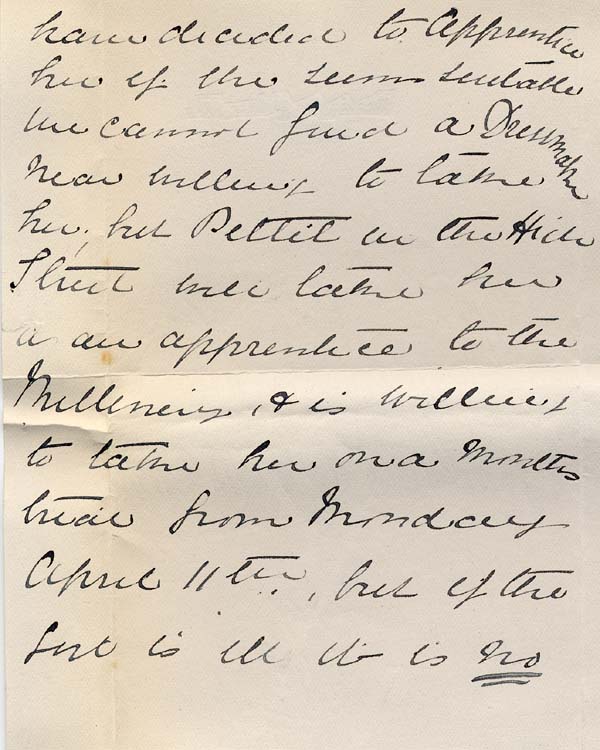 have decided to Apprentice
her if she seems suitable
We cannot find a Dressmaker
near willing to take
her, but Pettit in the High
Street will take her
a an apprentice to the
Millinery, & is willing
to take her on a months
trial from Monday
April 11th, but if the
girl is ill it is no